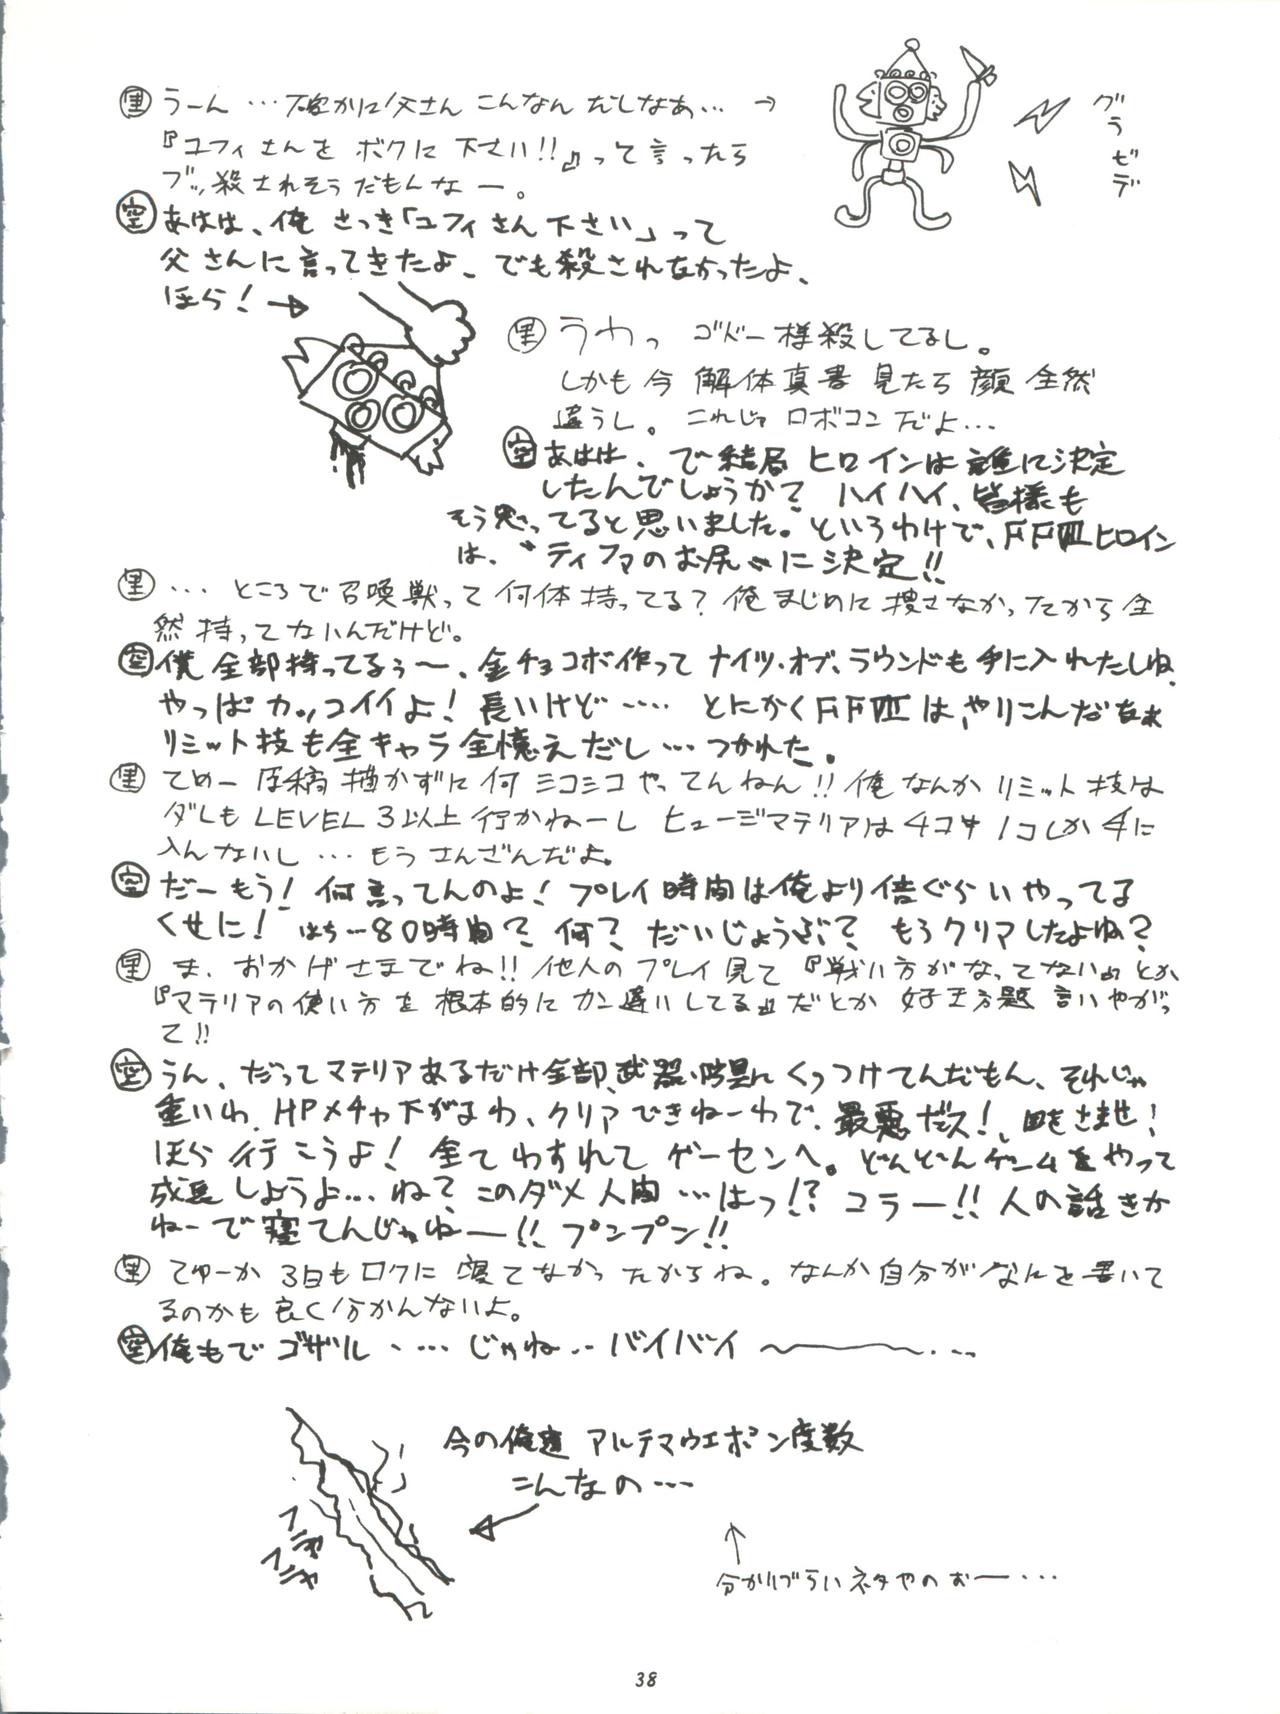 里 うーん …確かに父さん こんなん だしなあ… →
『ユフィさんを ボクに 下さい!!』って言ったら
ブッ殺されそうだもんなー。
グラビデ
空 あはは、俺 さっき「ユフィさん下さい」って
父さんに言ってきたよ、でも殺されなかったよ、
ほら! →
里 うわっ ゴドー様殺してるし。
しかも今 解体真書 見たら 顔 全然
違うし。これじゃ ロボコンだよ…
空 あはは、で結局 ヒロインは 誰に決定
したんでしょうか? ハイハイ、皆様も
そう思ってると思いました。というわけで、FFⅦヒロイン
は、〝ティファのお尻〟に決定!!
里 … ところで召喚獣って 何体持ってる? 俺 まじめに 捜さなかったから全
然 持ってないんだけど。
空 僕 全部持ってるぅ〜、金チョコボ作って ナイツ・オブ・ラウンドも手に入れたしね、
やっぱカッコイイよ! 長いけど…… とにかくFFⅦは、やりこんだなぁ
リミット技も全キャラ全憶えだし…つかれた。
里 てめー原稿描かずに何 ニコニコやってんねん!! 俺なんか リミット技は
ダレも LEVEL 3以上 行かねーし ヒュージマテリアは 4コ中 1コしか 手に
入んないし … もう さんざんだよ。
空 だーもう! 何言ってんのよ! プレイ時間は俺より倍ぐらいやってる
くせに! はち…80時間? 何? だいじょうぶ? もうクリアしたよね?
里 ま、おかげさまでね!! 他人の プレイ見て 『戦い方がなってない』とか
『マテリアの使い方を 根本的に カン違いしてる』だとか 好き放題 言いやがっ
て!!
空 うん、だってマテリアあるだけ全部、武器、防具にくっつけてんだもん、それじゃ
重いわ、HPメチャ下がるわ、クリアできねーわで、最悪だス! 目をさませ!
ほら 行こうよ! 全てわすれて ゲーセンへ。どんどんゲームをやって
成長しようよ…ね? このダメ人間 …はっ!? コラー!! 人の話きか
ねーで寝てんじゃねー!! プンプン!!
里 てゆーか 3日もロクに 寝てなかったからね。なんか自分がなにを書いて
るのかも良く分かんないよ。
空 俺もで ゴザル ‥… じゃね‥ バイバイ 〜
今の俺達 アルテマウエポン度数
こんなの…
フニャ
フニャ
↑
分かりづらいネタやのおー…
38